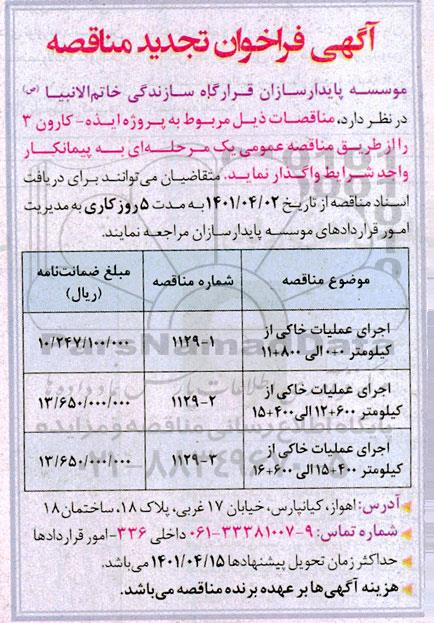 آگهی فراخوان تجدید مناقصه
موسسه پایدارسازان قرارگاه سازندگی خاتم‌الانبیا (ص)
در نظر دارد، مناقصات ذیل مربوط به پروژه ایذه-کارون ۳
را از طریق مناقصه عمومی یک مرحله‌ای به پیمانکار
واجد شرایط واگذار نماید. متقاضیان می‌توانند برای دریافت
اسناد مناقصه از تاریخ ۱۴۰۱/۰۴/۰۲ به مدت ۵ روز کاری به مدیریت
امور قراردادهای موسسه پایدارسازان مراجعه نمایند.
موضوع مناقصه شماره مناقصه مبلغ ضمانت‌نامه
(ریال)
اجرای عملیات خاکی از
کیلومتر ۰+۰ الی ۸۰۰+۱۱ ۱۱۲۹-۱ ۱۰/۲۴۷/۱۰۰/۰۰۰
اجرای عملیات خاکی از
کیلومتر ۶۰۰+۱۲ الی ۴۰۰+۱۵ ۱۱۲۹-۲ ۱۳/۶۵۰/۰۰۰/۰۰۰
اجرای عملیات خاکی از
کیلومتر ۴۰۰+۱۵ الی ۶۰۰+۱۶ ۱۱۲۹-۳ ۱۳/۶۵۰/۰۰۰/۰۰۰
آدرس: اهواز، کیانپارس، خیابان ۱۷ غربی، پلاک ۱۸، ساختمان ۱۸
شماره تماس: ۹-۳۳۳۸۱۰۰۷-۰۶۱ داخلی ۳۳۶-امور قراردادها
حداکثر زمان تحویل پیشنهادها ۱۴۰۱/۰۴/۱۵ می‌باشد.
هزینه آگهی‌ها بر عهده برنده مناقصه می‌باشد.
ParsNamadData